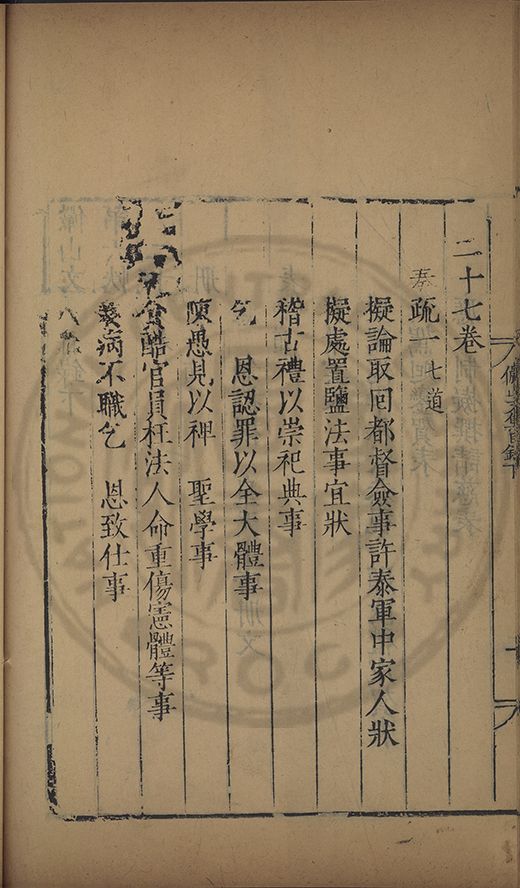 二十七卷
奏疏一 七道
擬論取回都督僉事許泰軍中家人狀
擬處置鹽法事宜狀
稽古禮以崇祀典事
乞 恩認罪以全大體事
陳愚見以裨 聖學事
貪酷官員枉法人命重傷憲體等事
病不職乞 恩致仕事